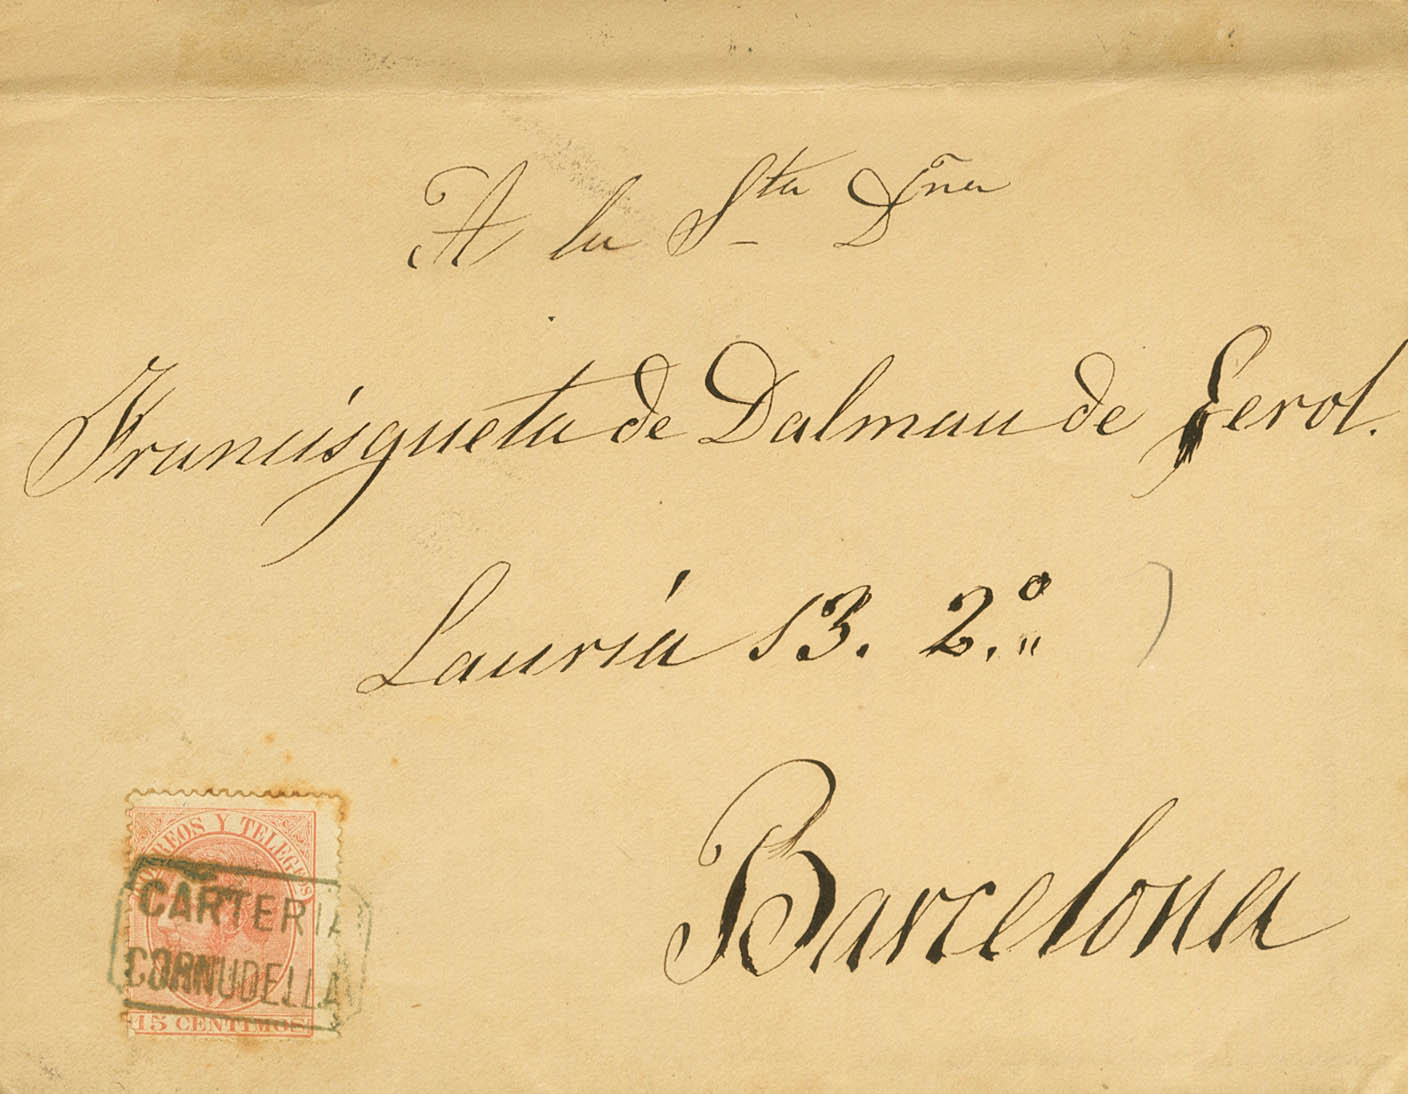 A la Sta Dña
Francisqueta de Dalmau de Ferol.
Lauria 13. 2.º
Barcelona
CORREOS Y TELEGFS
CARTERIA
CORNUDELLA
15 CENTIMOS